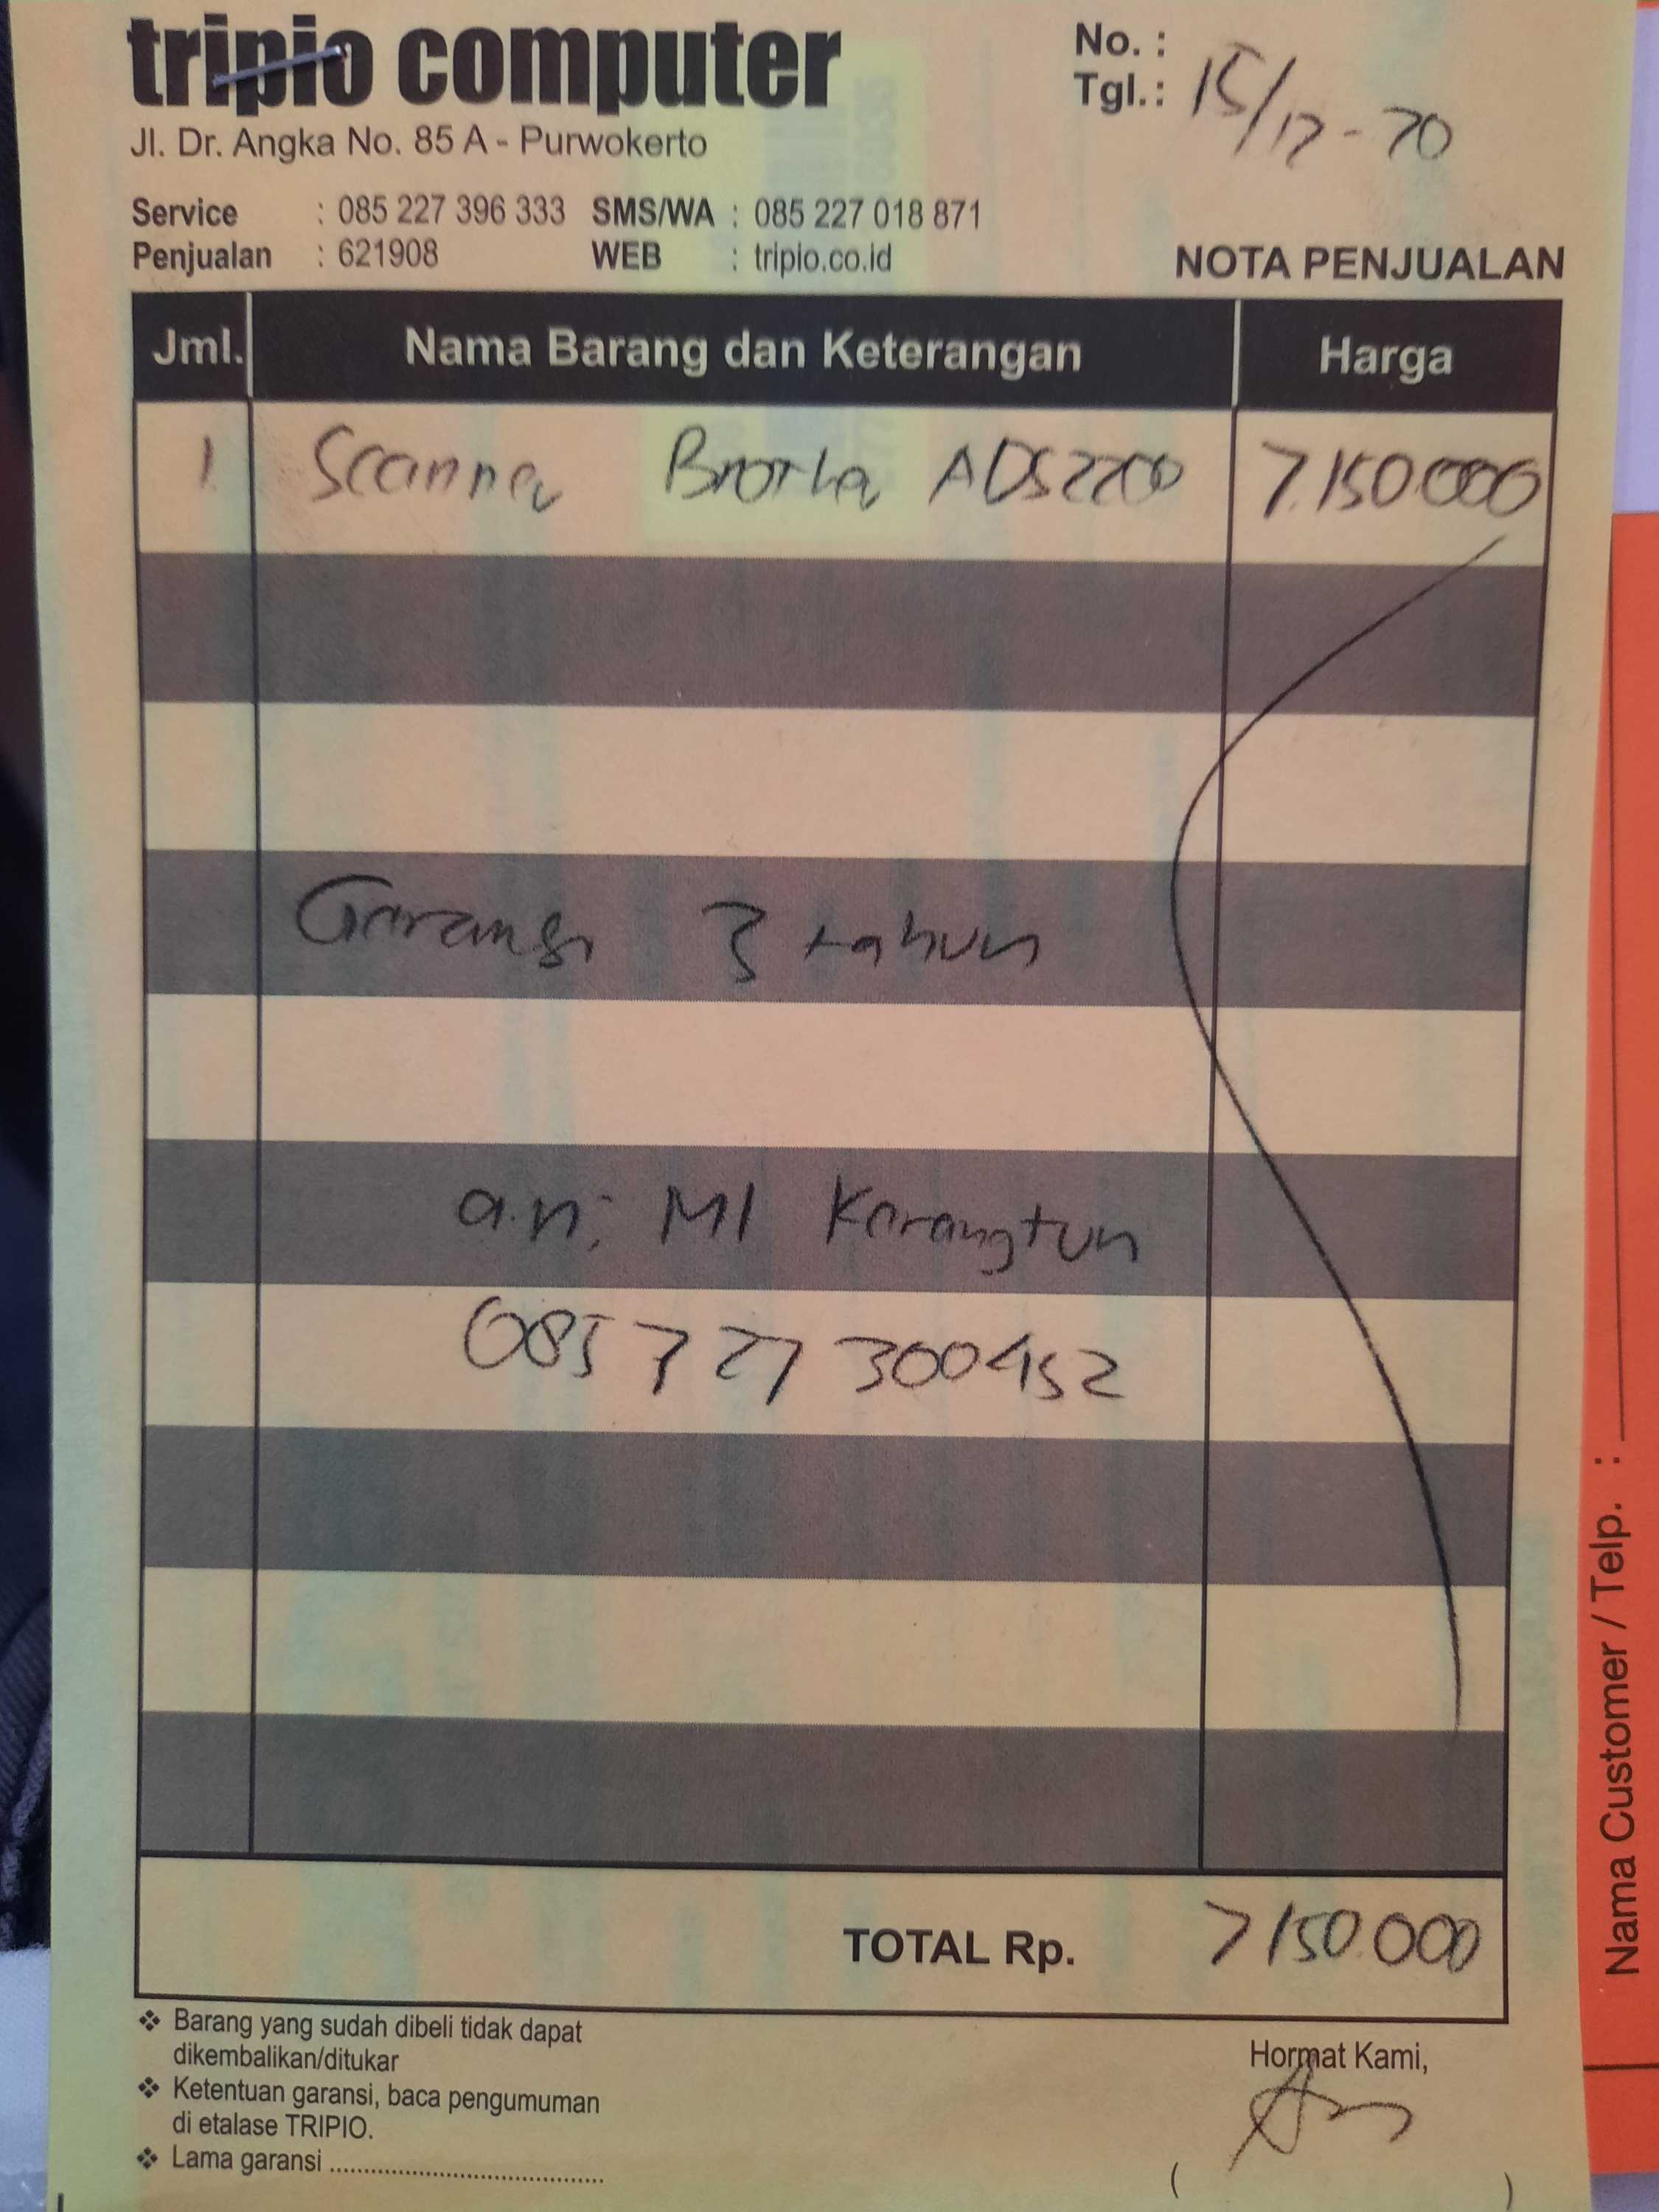 tripio computer
Jl. Dr. Angka No. 85 A - Purwokerto
No. :
Tgl. : 15/12-20
Service : 085 227 396 333 SMS/WA : 085 227 018 871
Penjualan : 621908 WEB : tripio.co.id
NOTA PENJUALAN
Jml. Nama Barang dan Keterangan Harga
1 Scanner Brother ADS2200 7.150.000
Garansi 3 tahun
a.n; MI Karangtun
085 727 300452
TOTAL Rp. 7150.000
❖ Barang yang sudah dibeli tidak dapat
dikembalikan/ditukar
❖ Ketentuan garansi, baca pengumuman
di etalase TRIPIO.
❖ Lama garansi ........................................
Hormat Kami,
( )
Nama Customer / Telp. :